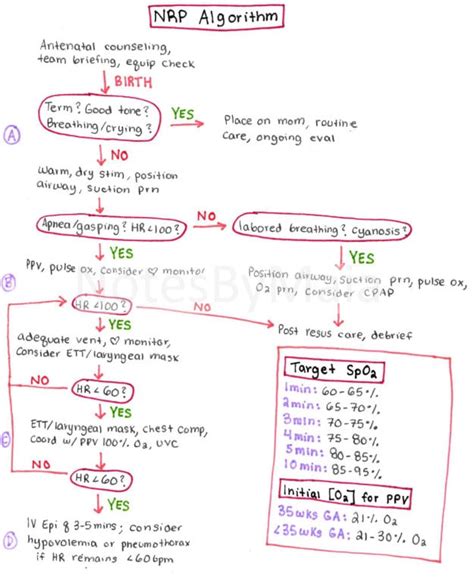 NRP Algorithm
Antenatal counseling,
team briefing, equip check
BIRTH
Term? Good tone?
Breathing/crying?
YES
Place on mom, routine
care, ongoing eval
A
NO
Warm, dry stim, position
airway, suction prn
Apnea/gasping? HR<100?
NO
labored breathing? cyanosis?
YES
YES
PPV, pulse ox, consider ♡ monitor
Position airway, suction prn, pulse ox,
O2 prn, consider CPAP
B
NotesBy
HR<100?
NO
YES
Post resus care, debrief
adequate vent, ♡ monitor,
Consider ETT/laryngeal mask
NO
HR<60?
YES
ETT/laryngeal mask, chest comp,
Coord w/ PPV 100% O2, UVC
C
NO
HR<60?
YES
IV Epi q 3-5mins; consider
hypovolemia or pneumothorax
if HR remains <60bpm
D
Target SpO2
1min: 60-65%
2min: 65-70%
3min: 70-75%
4min: 75-80%
5min: 80-85%
10min: 85-95%
Initial [O2] for PPV
35wks GA: 21% O2
<35wks GA: 21-30% O2